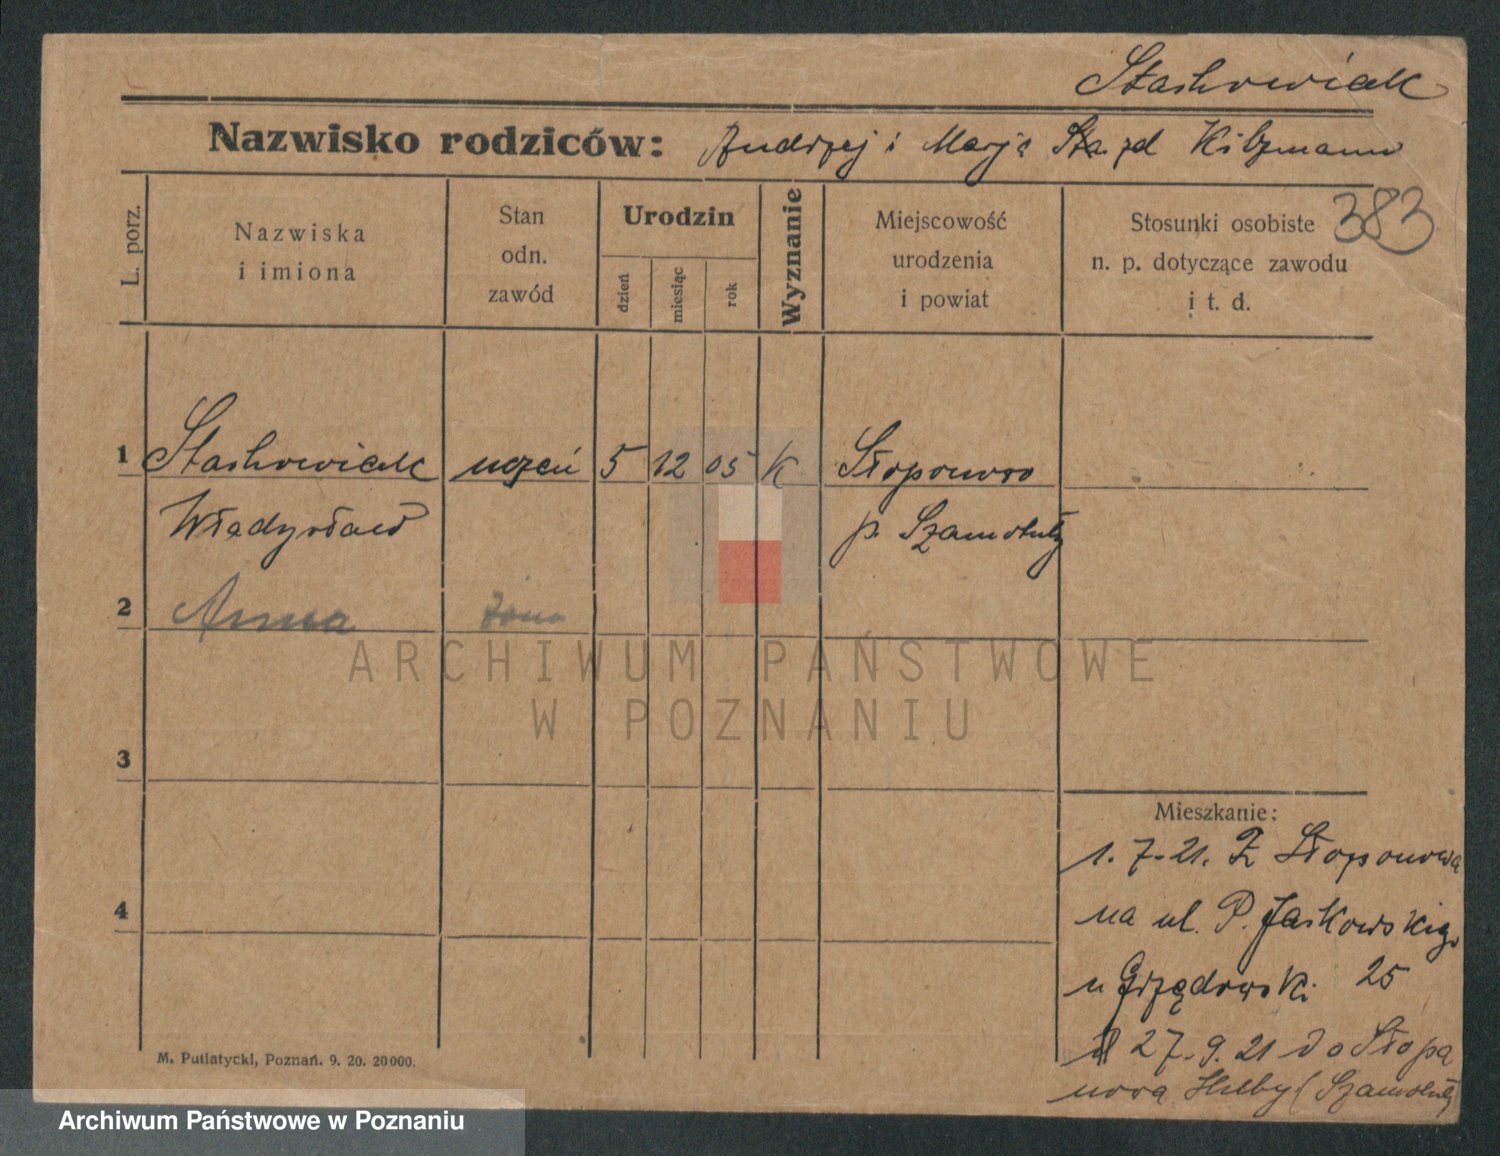 Stachowiak
Nazwisko rodziców: Andrzej i Marja Sta. zd Kilzmann
383
L. porz.
Nazwiska
i imiona
Stan
odn.
zawód
Urodzin
dzień
miesiąc
rok
Wyznanie
Miejscowość
urodzenia
i powiat
Stosunki osobiste
n. p. dotyczące zawodu
i t. d.
1 Stachowiak uczeń 5 12 05 K Słopanowo
Władysław p. Szamotuły
2 Anna żona
3
4
Mieszkanie:
1. 7. 21. Z Słopanowa
na ul. P. Jackowskiego
u Grzędowski 25
27. 9. 21 do Słopa
nowa Huby (Szamotuły
M. Putiatycki, Poznań. 9. 20. 20000.
ARCHIWUM PAŃSTWOWE
W POZNANIU
Archiwum Państwowe w Poznaniu